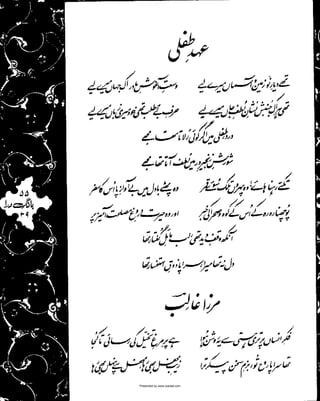 عہدِ طفلی
تھے دیارِ نو زمین و آسماں میرے لیے وسعتِ آغوشِ مادر اک جہاں میرے لیے
تھی ہر اک جنبش نشانِ لطفِ جاں میرے لیے حرفِ بے مطلب تھی خود میری زباں میرے لیے
دردِ طفلی میں اگر کوئی رُلاتا تھا مجھے
شورشِ زنجیرِ در میں لطف آتا تھا مجھے
تکتے رہنا ہائے وہ پہروں تلک سوئے قمر وہ پھٹے بادل میں بے آوازِ پا اس کا سفر
پوچھنا رہ رہ کے اس کے کوہ و صحرا کی خبر اور وہ حیرت دروغِ مصلحت آمیز پر
آنکھ وقفِ دید تھی لب مائلِ گفتار تھا
دل نہ تھا میرا سراپا ذوقِ استفسار تھا
مرزا غالب
فکرِ انساں پر تری ہستی سے یہ روشن ہوا ہے پرِ مرغِ تخیل کی رسائی تا کجا
تھا سراپا روح تو بزمِ سخن پیکر ترا زیبِ محفل بھی رہا محفل سے پنہاں بھی رہا
۵۵
بانگِ درا
۳۹